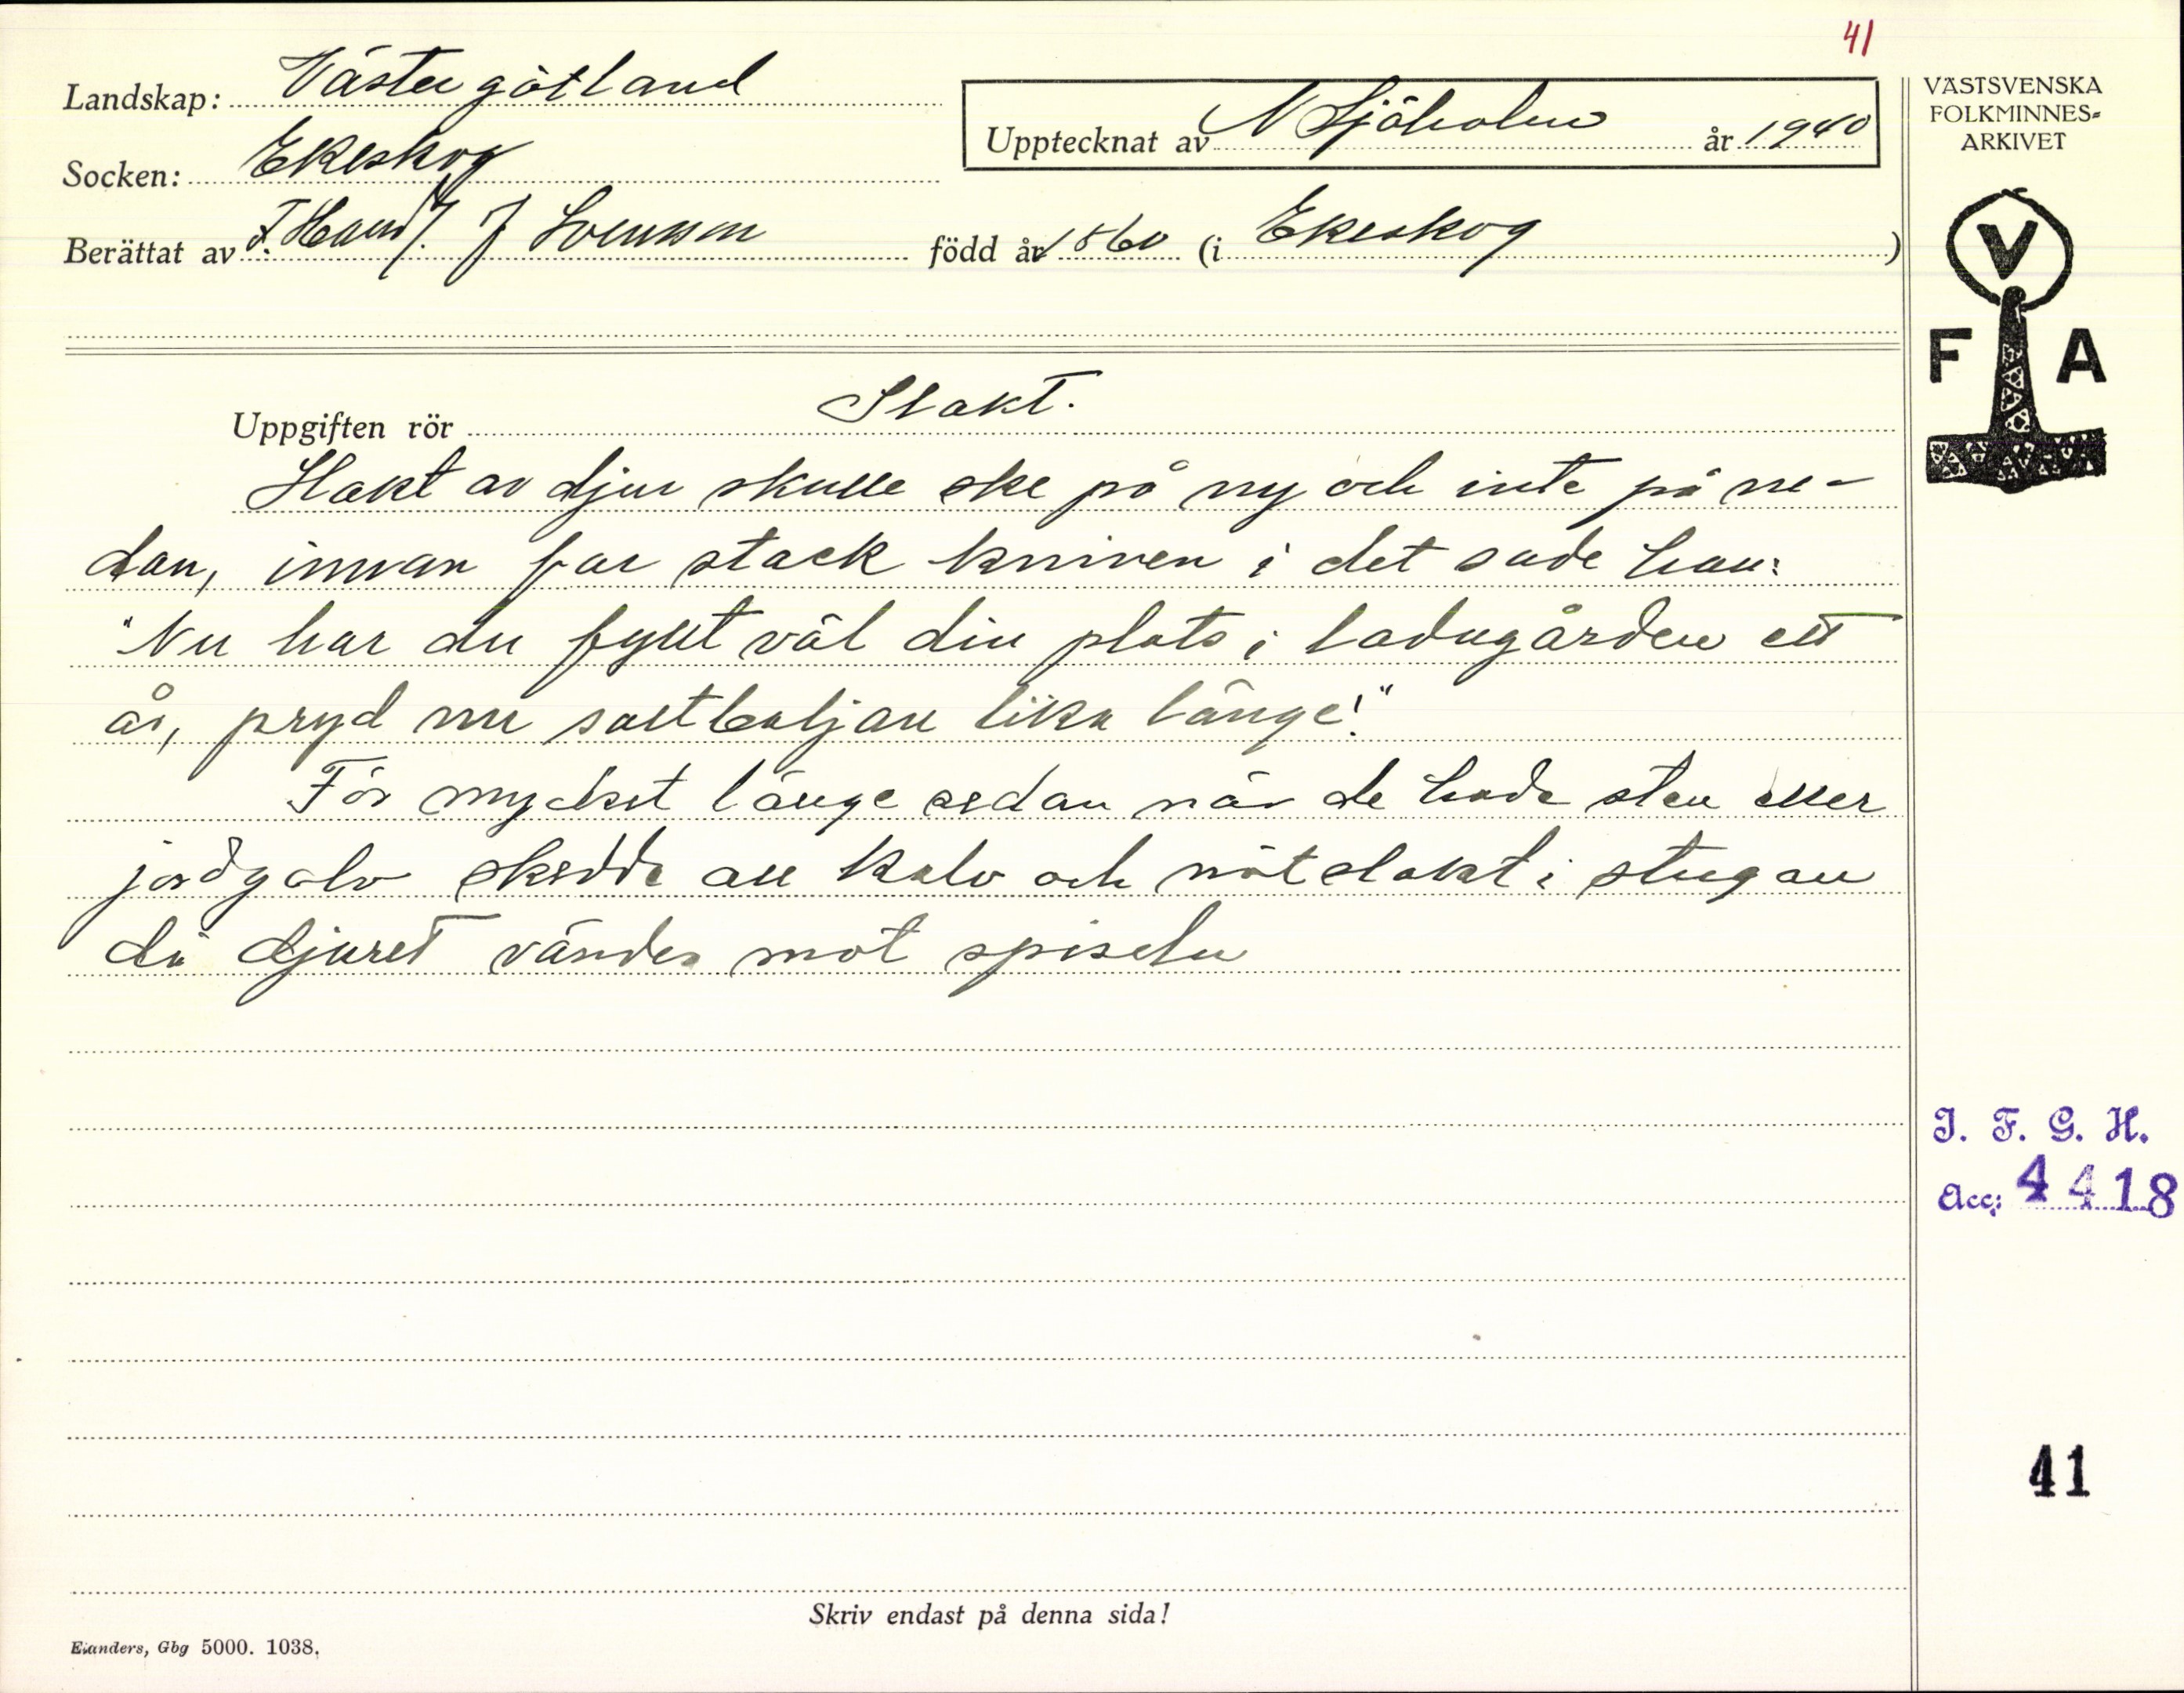 41
Landskap: Västergötland
Upptecknat av N Sjöholm år 1940
VÄSTSVENSKA
FOLKMINNES=
ARKIVET
Socken: Ekeskog
Berättat av F. J Svensson född år 1860 (i Ekeskog )
V
F A
Uppgiften rör Slakt.
Slakt av djur skulle ske på ny och inte på ne-
dan, innan far stack kniven i det sade han:
"Nu har du fyllt väl din plats i ladugården ett
år, pryd nu saltbaljan lika länge!"
För mycket länge sedan när de hade sten eller
jordgolv skedde all kalv och nötslakt i stugan
då djuret vändes mot spiseln
I. F. G. H.
Acc: 4418
41
Skriv endast på denna sida!
Elanders, Gbg 5000. 1038.